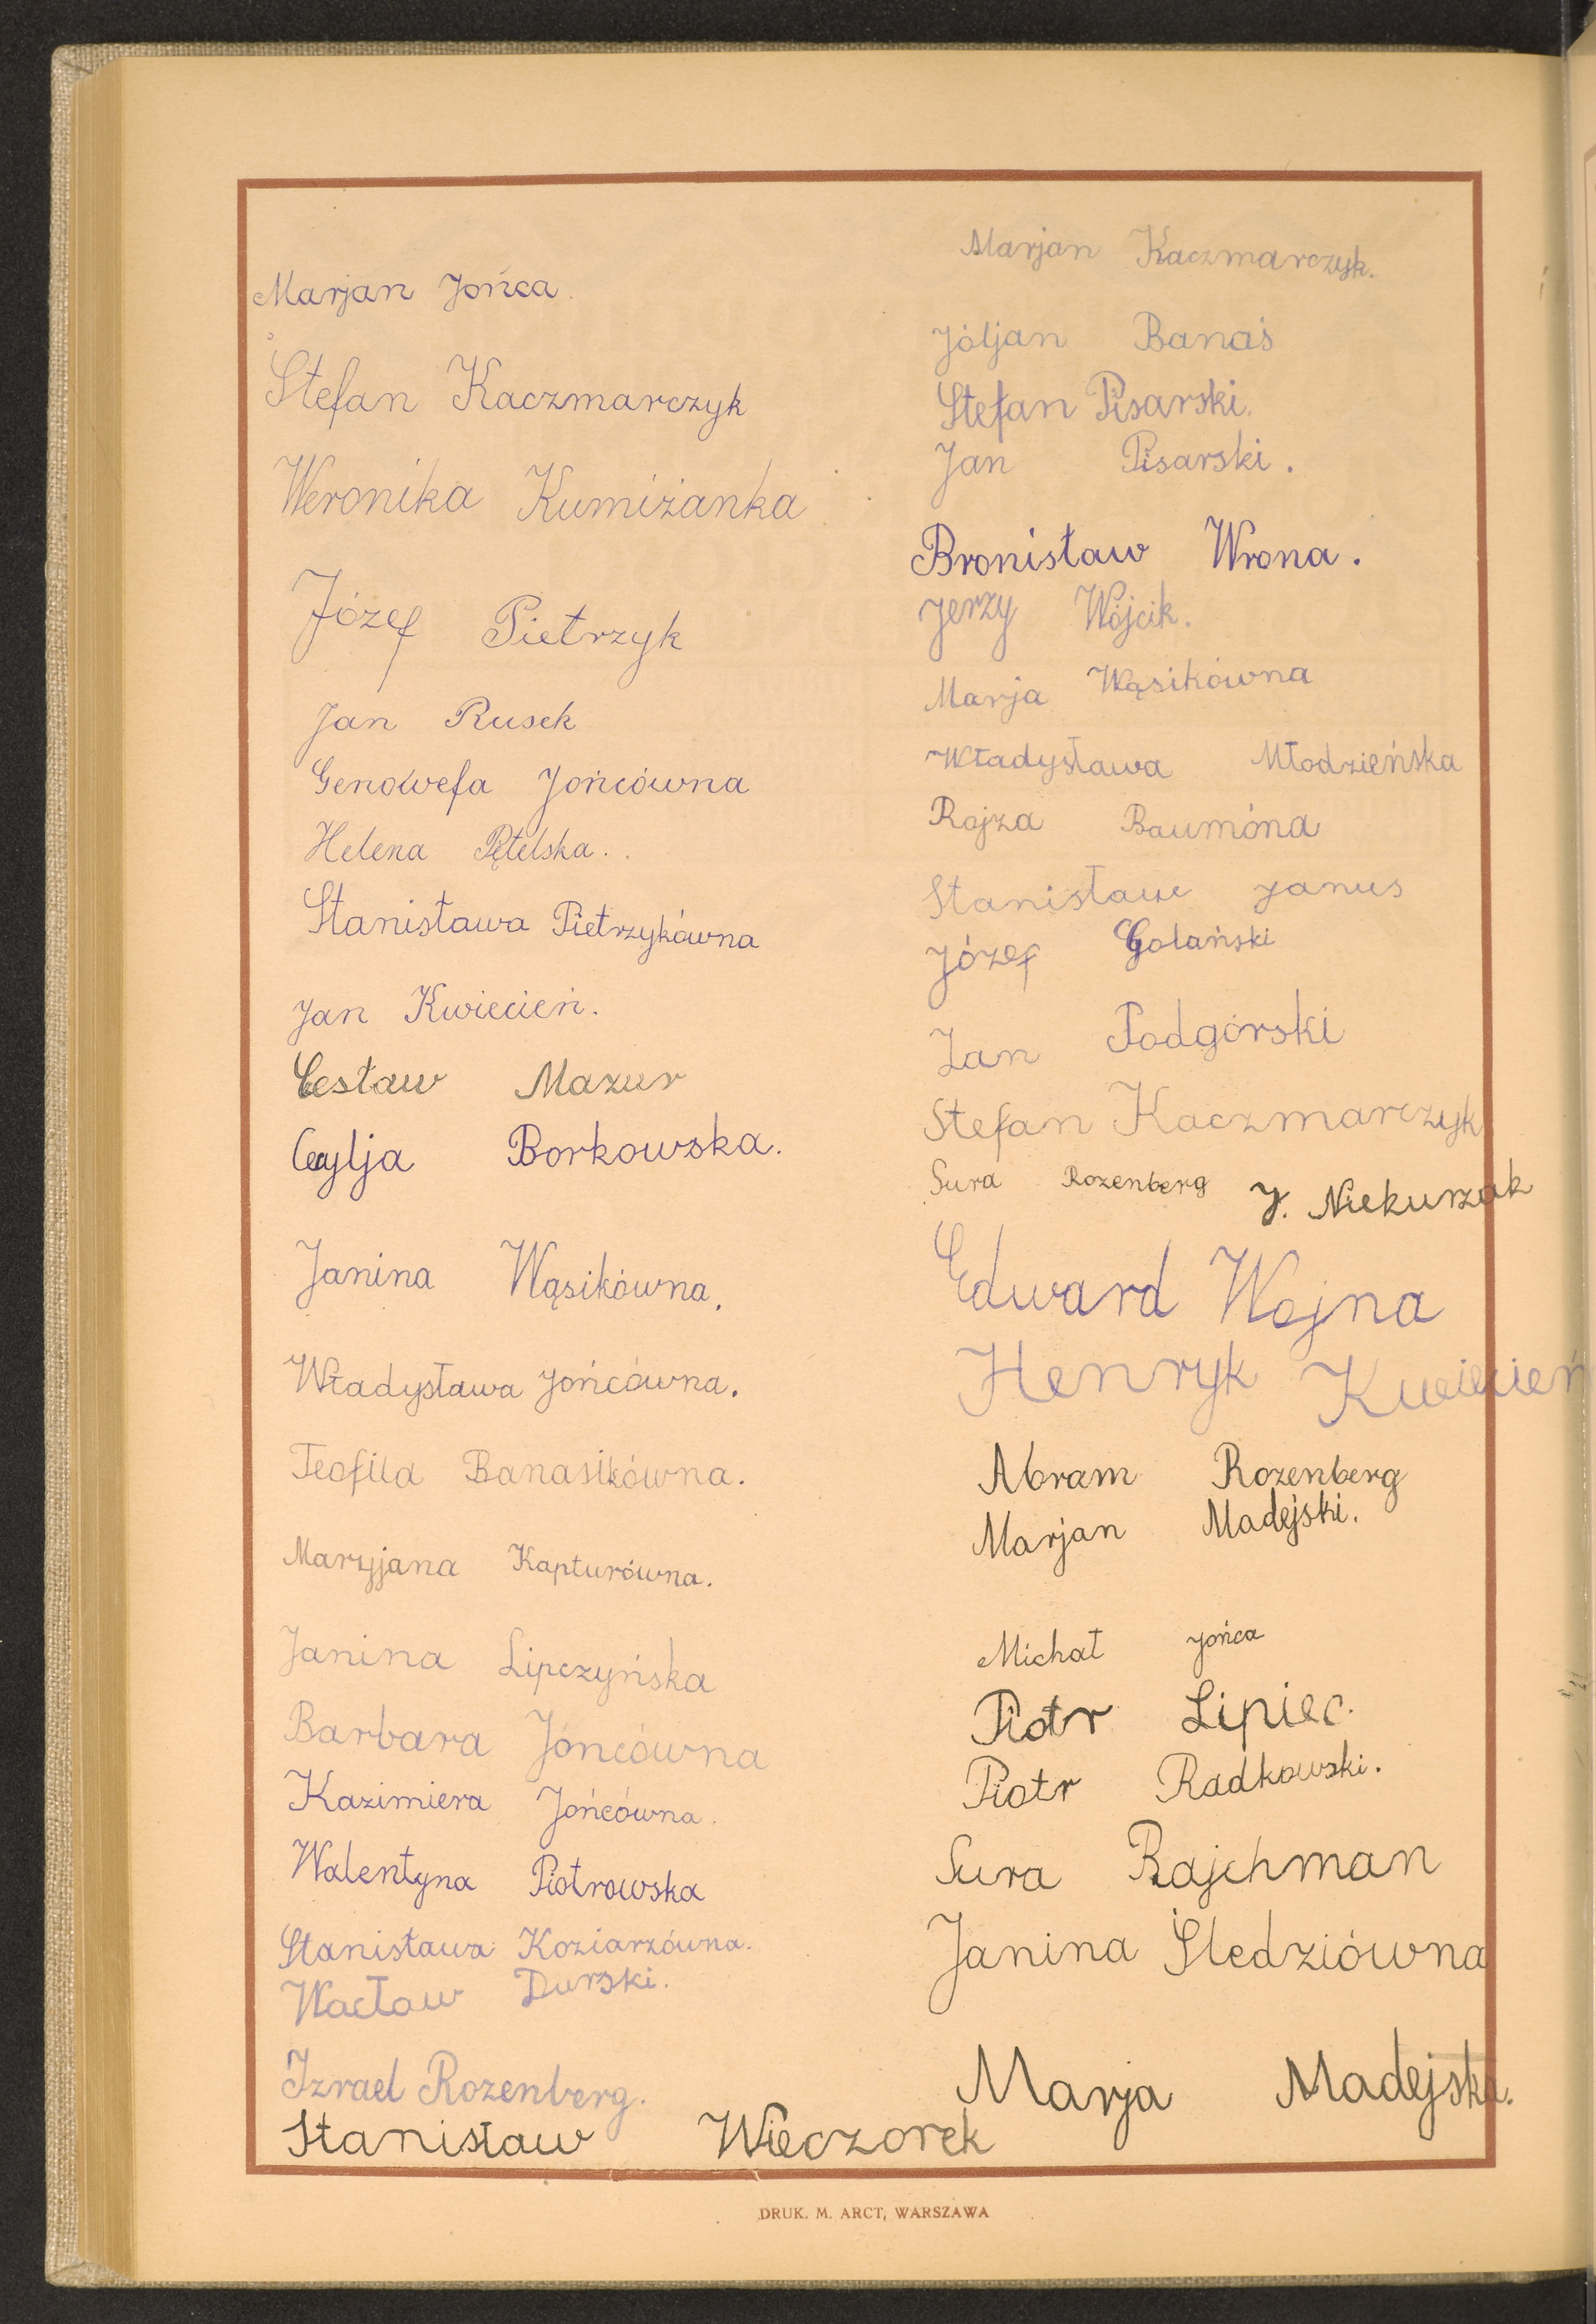 Marjan Jońca.
Stefan Kaczmarczyk
Weronika Kumiżanka
Józef Pietrzyk
Jan Rusek
Genowefa Jońcówna
Helena Pętelska.
Stanisława Pietrzykówna
Jan Kwiecień.
Cesław Mazur
Cecylja Borkowska.
Janina Wąsikówna.
Władysława Jońcówna.
Teofila Banasikówna.
Maryjana Kapturówna.
Janina Lipczyńska
Barbara Jońcówna
Kazimiera Jońcówna.
Walentyna Piotrowska
Stanisława Koziarzówna.
Wacław Durski.
Izrael Rozenberg.
Stanisław Wieczorek
Marjan Kaczmarczyk.
Jóljan Banaś
Stefan Pisarski.
Jan Pisarski.
Bronisław Wrona.
Jerzy Wójcik.
Marja Wąsikówna
Władysława Młodzieńska
Rajza Baumóna
Stanisław Janus
Józef Golański
Jan Podgórski
Stefan Kaczmarczyk
Sura Rozenberg J. Niekurzak
Edward Wojna
Henryk Kwiecień
Abram Rozenberg
Marjan Madejski.
Michał Jońca
Piotr Lipiec.
Piotr Radkowski.
Sura Rajchman
Janina Śledziówna
Marja Madejska.
DRUK. M. ARCT, WARSZAWA